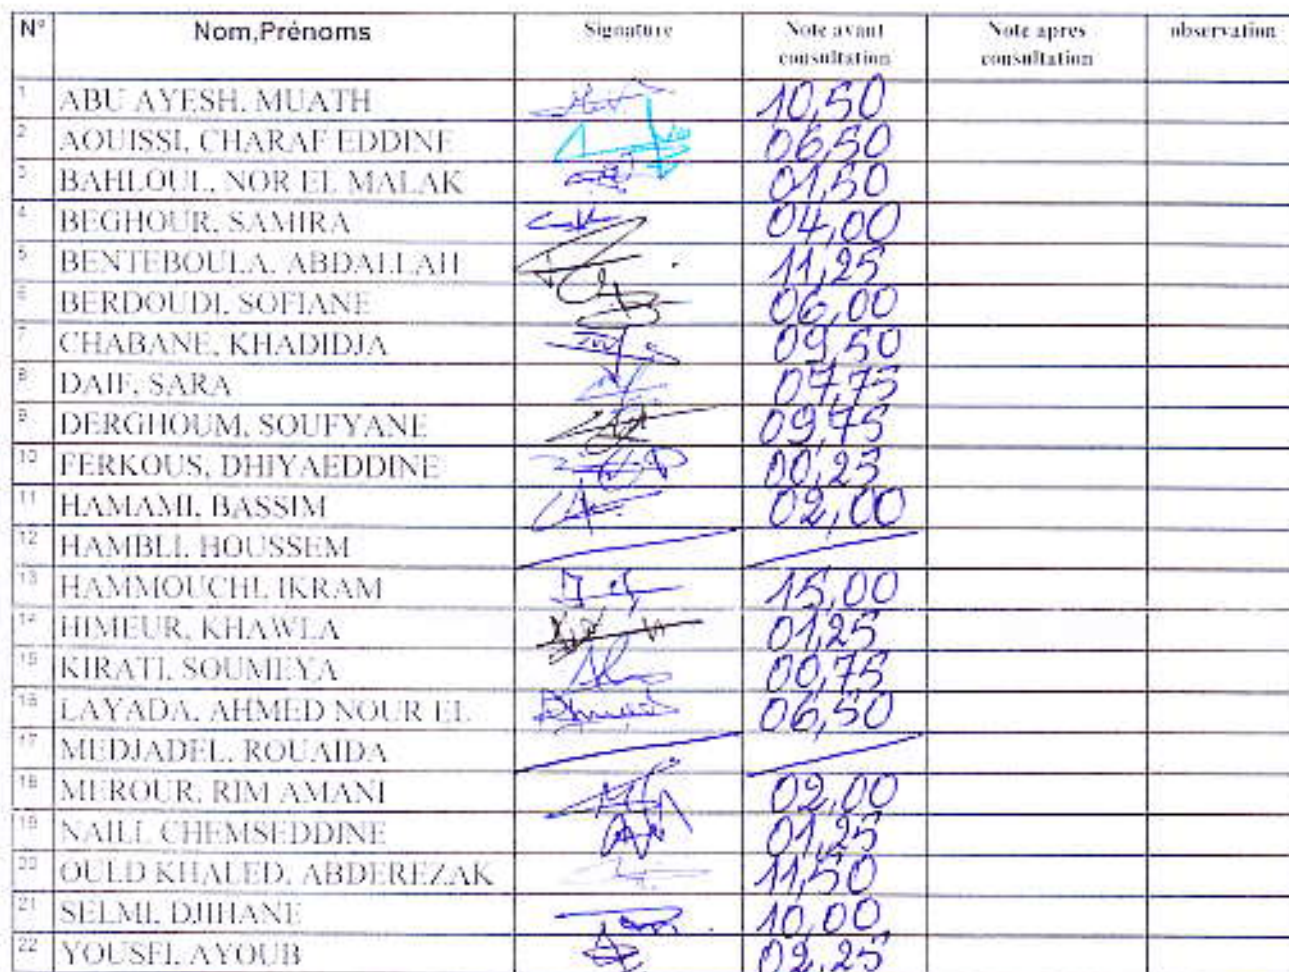 N° Nom,Prénoms Signature Note avant consultation Note apres consultation observation
1 ABU AYESH, MUATH 10,50
2 AOUISSI, CHARAF EDDINE 06,50
3 BAHLOUL, NOR EL MALAK 01,50
4 BEGHOUR, SAMIRA 04,00
5 BENTEBOULA, ABDALLAH 11,25
6 BERDOUDI, SOFIANE 06,00
7 CHABANE, KHADIDJA 09,50
8 DAIF, SARA 07,75
9 DERGHOUM, SOUFYANE 09,75
10 FERKOUS, DHIYAEDDINE 00,25
11 HAMAMI, BASSIM 02,00
12 HAMBLI, HOUSSEM
13 HAMMOUCHI, IKRAM 15,00
14 HIMEUR, KHAWLA 01,25
15 KIRATI, SOUMEYA 00,75
16 LAYADA, AHMED NOUR EL 06,50
17 MEDJADEL, ROUAIDA
18 MEROUR, RIM AMANI 02,00
19 NAILI, CHEMSEDDINE 01,25
20 OULD KHALED, ABDEREZAK 11,50
21 SELMI, DJIHANE 10,00
22 YOUSFI, AYOUB 02,25